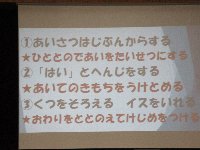 ①あいさつはじぶんからする
★ひととのであいをたいせつにする
②「はい」とへんじをする
★あいてのきもちをうけとめる
③くつをそろえる　イスをいれる
★おわりをととのえてけじめをつける